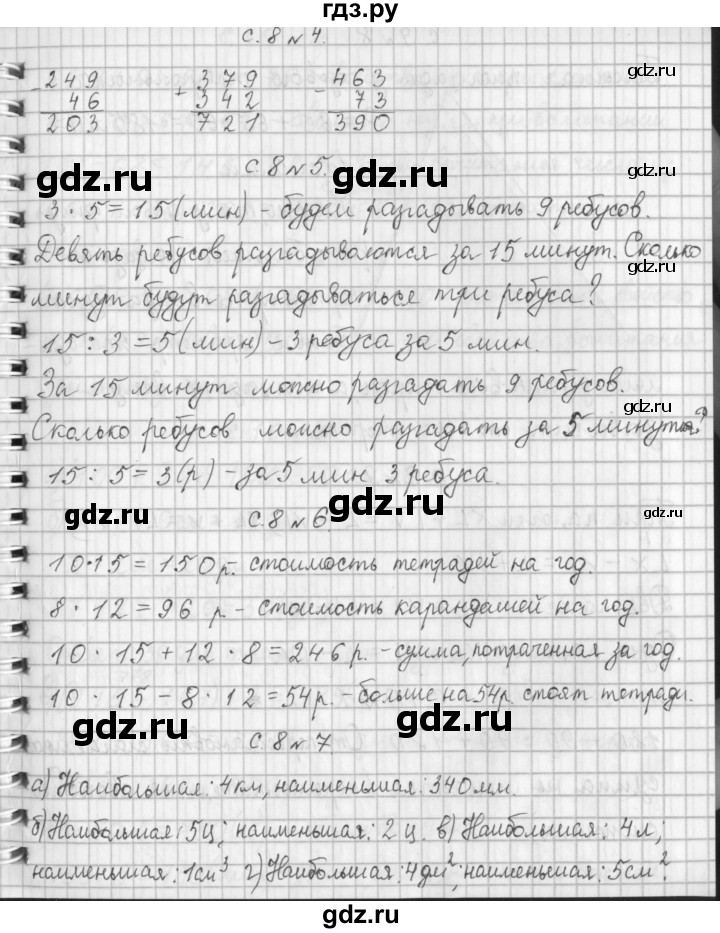 гдз.ру
с. 8 № 4.
- 249 + 379 - 463
46 342 73
203 721 390
gdz.ru gdz.ru
с. 8 № 5.
gdz.ru gdz.ru gdz.ru
3 · 5 = 15 (мин) - будем разгадывать 9 ребусов.
Девять ребусов разгадываются за 15 минут. Сколько
минут будут разгадываться три ребуса?
15 : 3 = 5 (мин) - 3 ребуса за 5 мин.
gdz.ru gdz.ru
За 15 минут можно разгадать 9 ребусов.
gdz.ru
Сколько ребусов можно разгадать за 5 минут?
15 : 5 = 3 (р) - за 5 мин 3 ребуса.
gdz.ru gdz.ru gdz.ru
с. 8 № 6.
10·15 = 150 р. стоимость тетрадей на год.
8 · 12 = 96 р - стоимость карандашей на год.
gdz.ru gdz.ru
10 · 15 + 12 · 8 = 246 р. - сумма, потраченная за год.
10 · 15 - 8 · 12 = 54 р. - больше на 54 р. стоят тетради.
gdz.ru gdz.ru
с. 8 № 7
а) Наибольшая: 4 км, наименьшая: 340 мм.
gdz.ru gdz.ru
б) Наибольшая: 5 ц; наименьшая: 2 ц. в) Наибольшая: 4 л;
наименьшая: 1 см³ г) Наибольшая: 4 дм²; наименьшая: 5 см².
gdz.ru